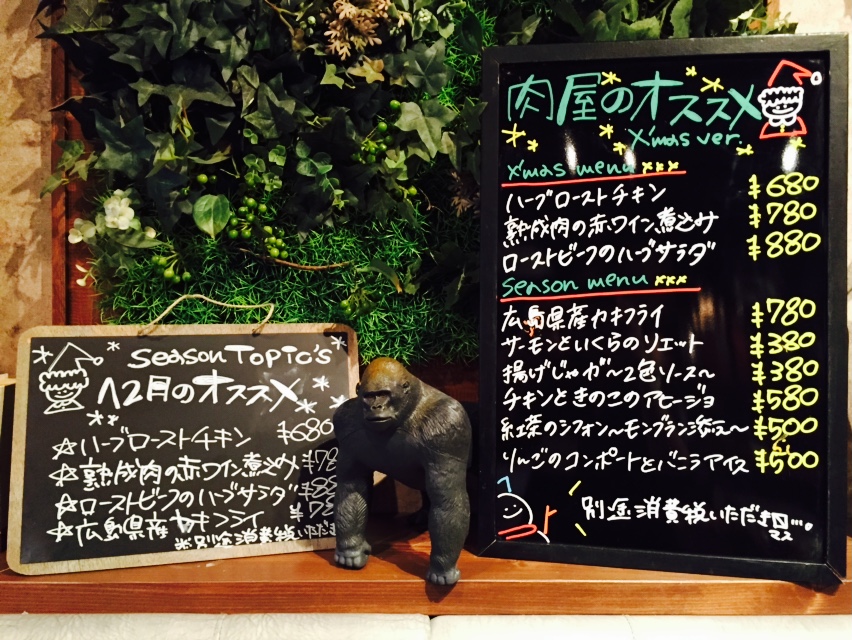 season Topic's
12月のオススメ
☆ハーブローストチキン ¥680
☆熟成肉の赤ワイン煮込み ¥78
☆ローストビーフのハーブサラダ ¥88
☆広島県産カキフライ ¥78
※別途消費税いただき
肉屋のオススメ
X'mas ver.
X'mas menu
ハーブローストチキン ¥680
熟成肉の赤ワイン煮込み ¥780
ローストビーフのハーブサラダ ¥880
season menu
広島県産カキフライ ¥780
サーモンといくらのリエット ¥380
揚げじゃが〜2色ソース〜 ¥380
チキンときのこのアヒージョ ¥580
紅茶のシフォン〜モンブラン添え〜 ¥500
りんごのコンポートとバニラアイス ¥500
別途消費税いただき□…。
マス